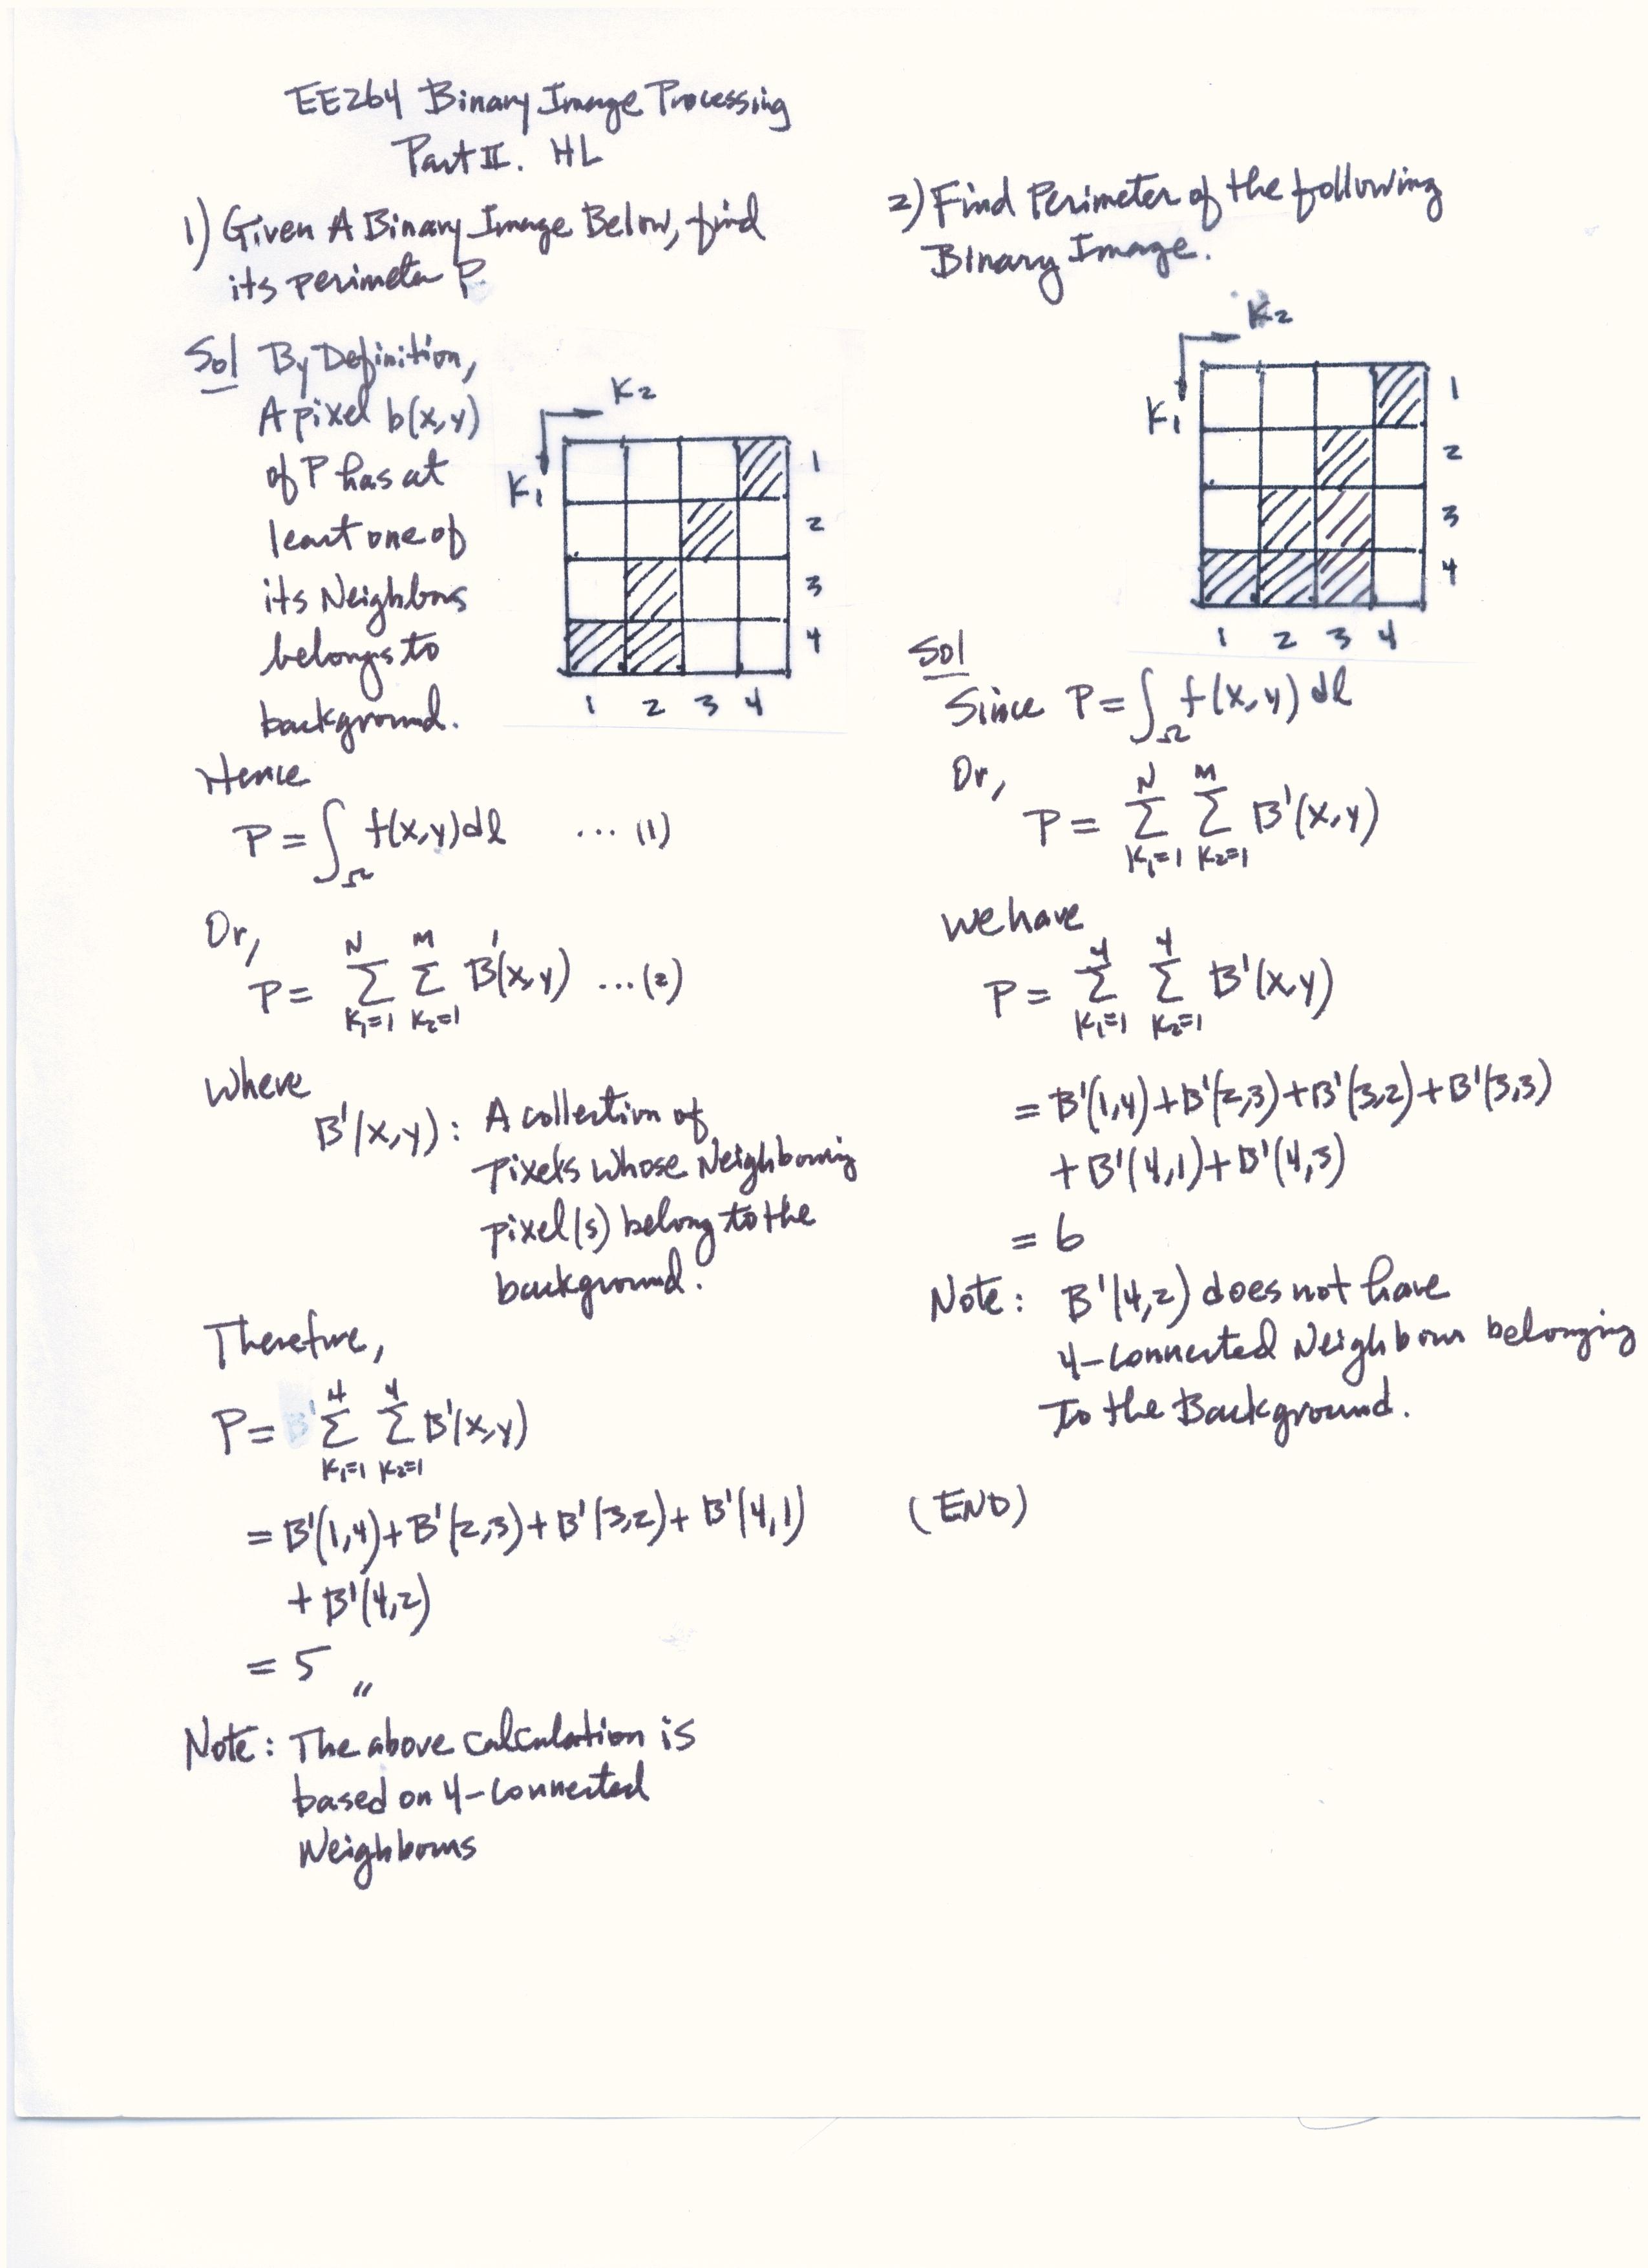 EE264 Binary Image Processing
Part II. HL
1) Given A Binary Image Below, find
its perimeter P
Sol By Definition,
A pixel b(x,y)
of P has at
least one of
its Neighbors
belongs to
background.
K2
K1
1
2
3
4
1 2 3 4
Hence
P = ∫Ω f(x,y)dl ... (1)
Or,
P = Σ(K1=1 to N) Σ(K2=1 to M) B'(x,y) ...(2)
Where
B'(x,y): A collection of
pixels whose Neighboring
pixel(s) belong to the
background.
Therefore,
P = Σ(K1=1 to 4) Σ(K2=1 to 4) B'(x,y)
= B'(1,4)+B'(2,3)+B'(3,2)+B'(4,1)
+ B'(4,2)
= 5 "
Note: The above calculation is
based on 4-connected
Neighbours
2) Find Perimeter of the following
Binary Image.
K2
K1
1
2
3
4
1 2 3 4
Sol
Since P = ∫Ω f(x,y) dl
Or,
P = Σ(K1=1 to N) Σ(K2=1 to M) B'(x,y)
we have
P = Σ(K1=1 to 4) Σ(K2=1 to 4) B'(x,y)
= B'(1,4)+B'(2,3)+B'(3,2)+B'(3,3)
+ B'(4,1)+B'(4,3)
= 6
Note: B'(4,2) does not have
4-connected Neighbour belonging
To the Background.
(END)